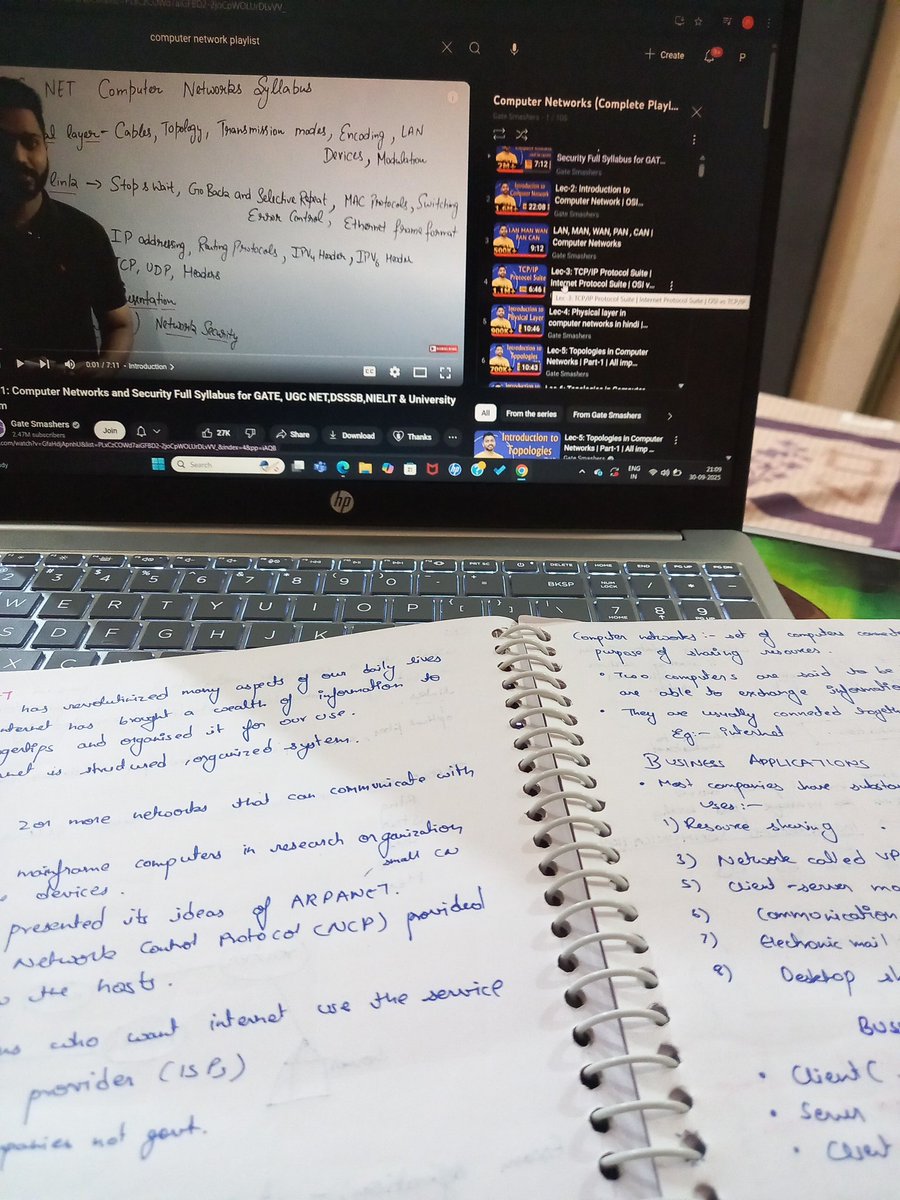 computer network playlist
Create
P
NET Computer Networks Syllabus
layer - Cables, Topology, Transmission modes, Encoding, LAN
Devices, Modulation
link → Stop & Wait, Go Back and Selective Repeat, MAC Protocols, Switching
Error Control, Ethernet frame format
IP addressing, Routing Protocols, IPV4 Header, IPV6 Header
TCP, UDP, Headers
Network Security
0:01 / 7:11 · Introduction
1: Computer Networks and Security Full Syllabus for GATE, UGC NET,DSSSB,NIELIT & University
Gate Smashers
2.47M subscribers
Join
27K
Share
Download
Thanks
Computer Networks (Complete Playl...
Gate Smashers - 1 / 105
7:12
Security Full Syllabus for GAT...
Gate Smashers
2
Introduction to Computer Network
22:08
Lec-2: Introduction to
Computer Network | OSI...
Gate Smashers
3
LAN MAN WAN PAN CAN
9:12
LAN, MAN, WAN, PAN , CAN |
Computer Networks
Gate Smashers
4
TCP/IP Protocol Suite
6:46
Lec-3: TCP/IP Protocol Suite |
Internet Protocol Suite | OSI v...
Lec-3: TCP/IP Protocol Suite | Internet Protocol Suite | OSI vs TCP/IP
5
Introduction to Physical Layer
900K+
10:46
Lec-4: Physical layer in
computer networks in hindi |...
Gate Smashers
6
Introduction to Topologies
10:43
Lec-5: Topologies in Computer
Networks | Part-1 | All imp...
Gate Smashers
All
From the series
From Gate Smashers
Introduction to Topologies
Lec-5: Topologies in Computer
Networks | Part-1 | All imp...
Search
ENG
IN
21:09
30-09-2025
hp
has revolutinized many aspects of our daily lives
internet has brought a wealth of information to
fingertips and organised it for our use.
is structured, organized system.
2 or more networks that can communicate with
mainframe computers in research organization
devices.
small CN
presented its ideas of ARPANET.
Network Control Protocol (NCP) provided
the hosts.
who want internet use the service
provider (ISPs)
companies not govt.
Computer networks :- set of computers
purpose of sharing resources.
• Two computers are said to be
are able to exchange information
• They are usually connected
Eg:- internet
BUSINESS APPLICATIONS
• Most companies have
uses :-
1) Resource sharing
3) Network called VP
5) Client - server
6) Communication
7) Electronic mail
8) Desktop
BUS
• Client
• Server
• Client